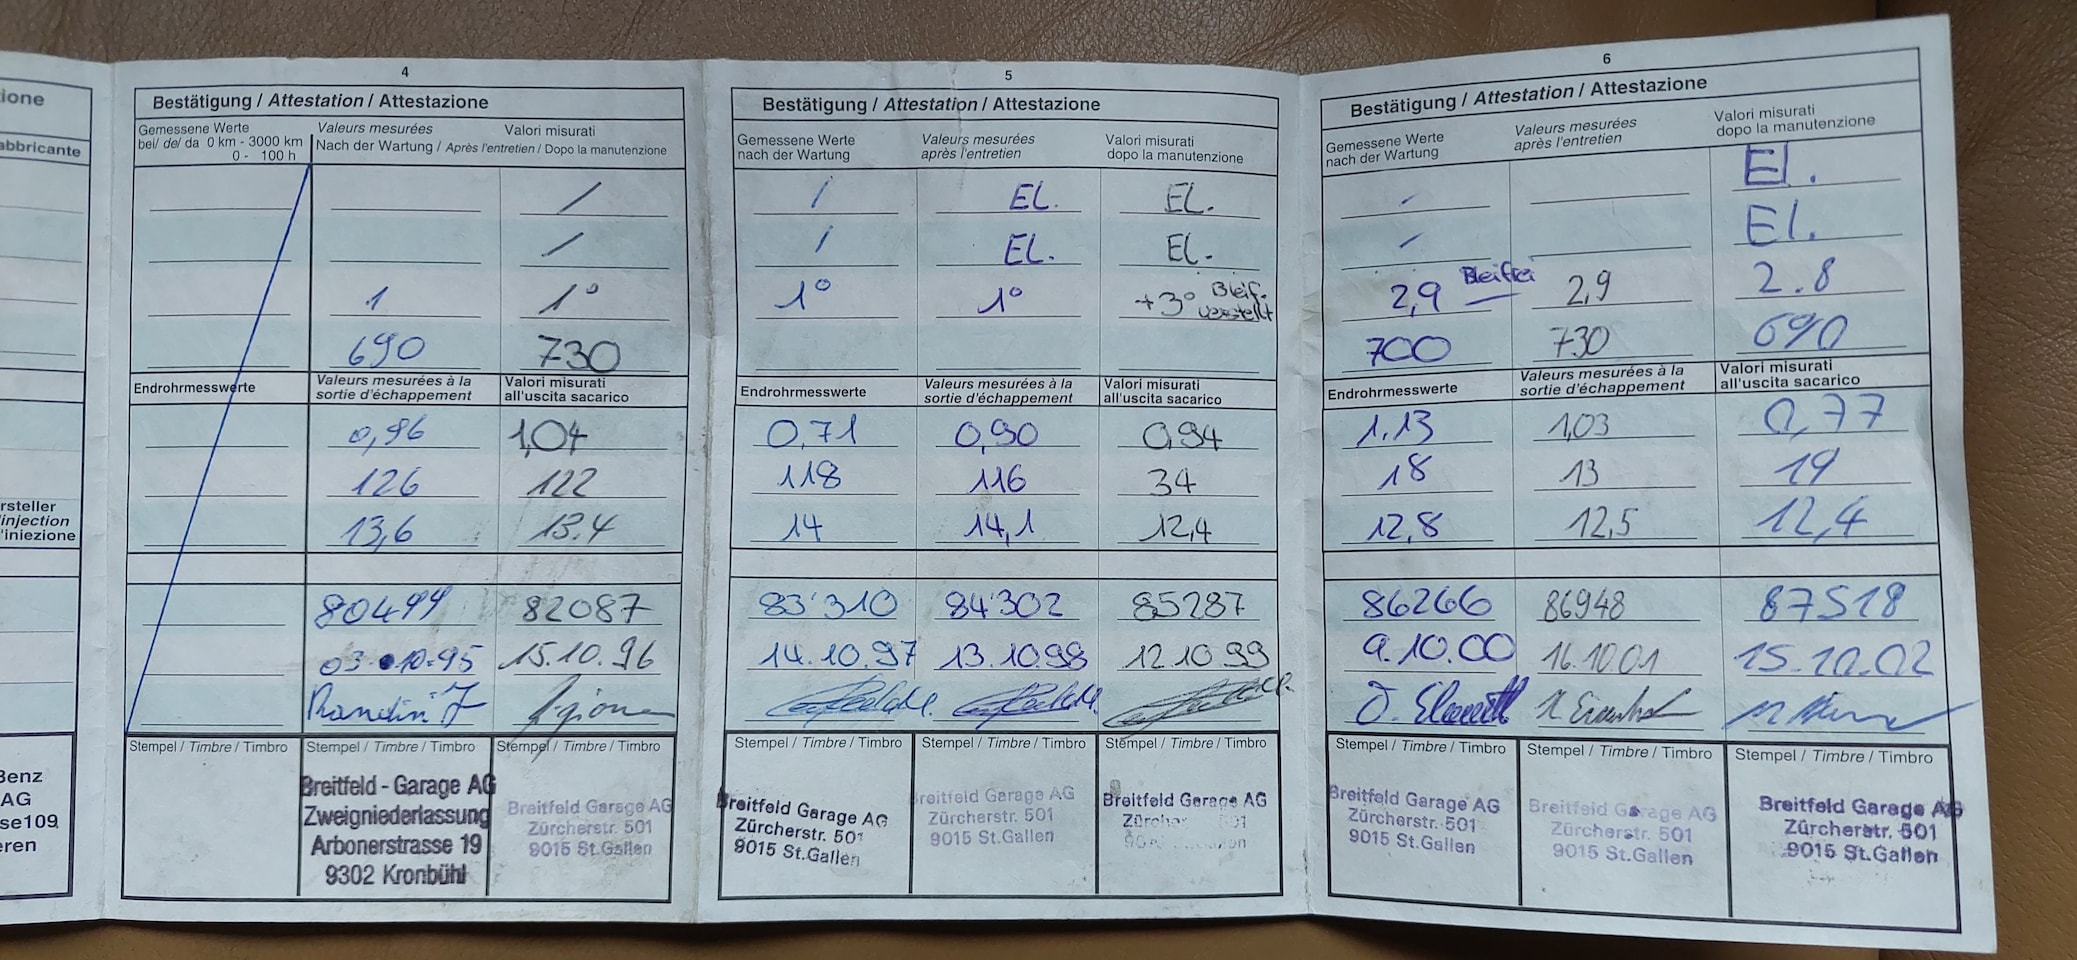 ione
abbricante
rsteller
injection
'iniezione
Benz
AG
se109
eren
4
Bestätigung / Attestation / Attestazione
Gemessene Werte
bei/ de/ da 0 km - 3000 km
0 - 100 h
Valeurs mesurées Valori misurati
Nach der Wartung / Après l'entretien / Dopo la manutenzione
/
/
1 1°
690 730
Endrohrmesswerte
Valeurs mesurées à la
sortie d'échappement
Valori misurati
all'uscita sacarico
0,96 1,04
126 122
13,6 13.4
80499 82087
03.10.95 15.10.96
Stempel / Timbre / Timbro Stempel / Timbre / Timbro Stempel / Timbre / Timbro
Breitfeld - Garage AG
Zweigniederlassung
Arbonerstrasse 19
9302 Kronbühl
Breitfeld Garage AG
Zürcherstr. 501
9015 St.Gallen
5
Bestätigung / Attestation / Attestazione
Gemessene Werte
nach der Wartung
Valeurs mesurées
après l'entretien
Valori misurati
dopo la manutenzione
/ EL. EL.
/ EL. EL.
1° 1° +3° Bleif.
verstellt
Endrohrmesswerte
Valeurs mesurées à la
sortie d'échappement
Valori misurati
all'uscita sacarico
0,71 0,90 0,94
118 116 34
14 14,1 12,4
83'310 84'302 85287
14.10.97 13.10.98 12.10.99
Stempel / Timbre / Timbro Stempel / Timbre / Timbro Stempel / Timbre / Timbro
Breitfeld Garage AG
Zürcherstr. 501
9015 St.Gallen
Breitfeld Garage AG
Zürcherstr. 501
9015 St.Gallen
Breitfeld Garage AG
6
Bestätigung / Attestation / Attestazione
Gemessene Werte
nach der Wartung
Valeurs mesurées
après l'entretien
Valori misurati
dopo la manutenzione
- El.
- El.
2,9 Bleifrei 2,9 2.8
700 730 690
Endrohrmesswerte
Valeurs mesurées à la
sortie d'échappement
Valori misurati
all'uscita sacarico
1.13 1,03 0,77
18 13 19
12,8 12,5 12,4
86266 86948 87518
9.10.00 16.10.01 15.10.02
Stempel / Timbre / Timbro Stempel / Timbre / Timbro Stempel / Timbre / Timbro
Breitfeld Garage AG
Zürcherstr. 501
9015 St.Gallen
Breitfeld Garage AG
Zürcherstr. 501
9015 St.Gallen
Breitfeld Garage AG
Zürcherstr. 501
9015 St.Gallen